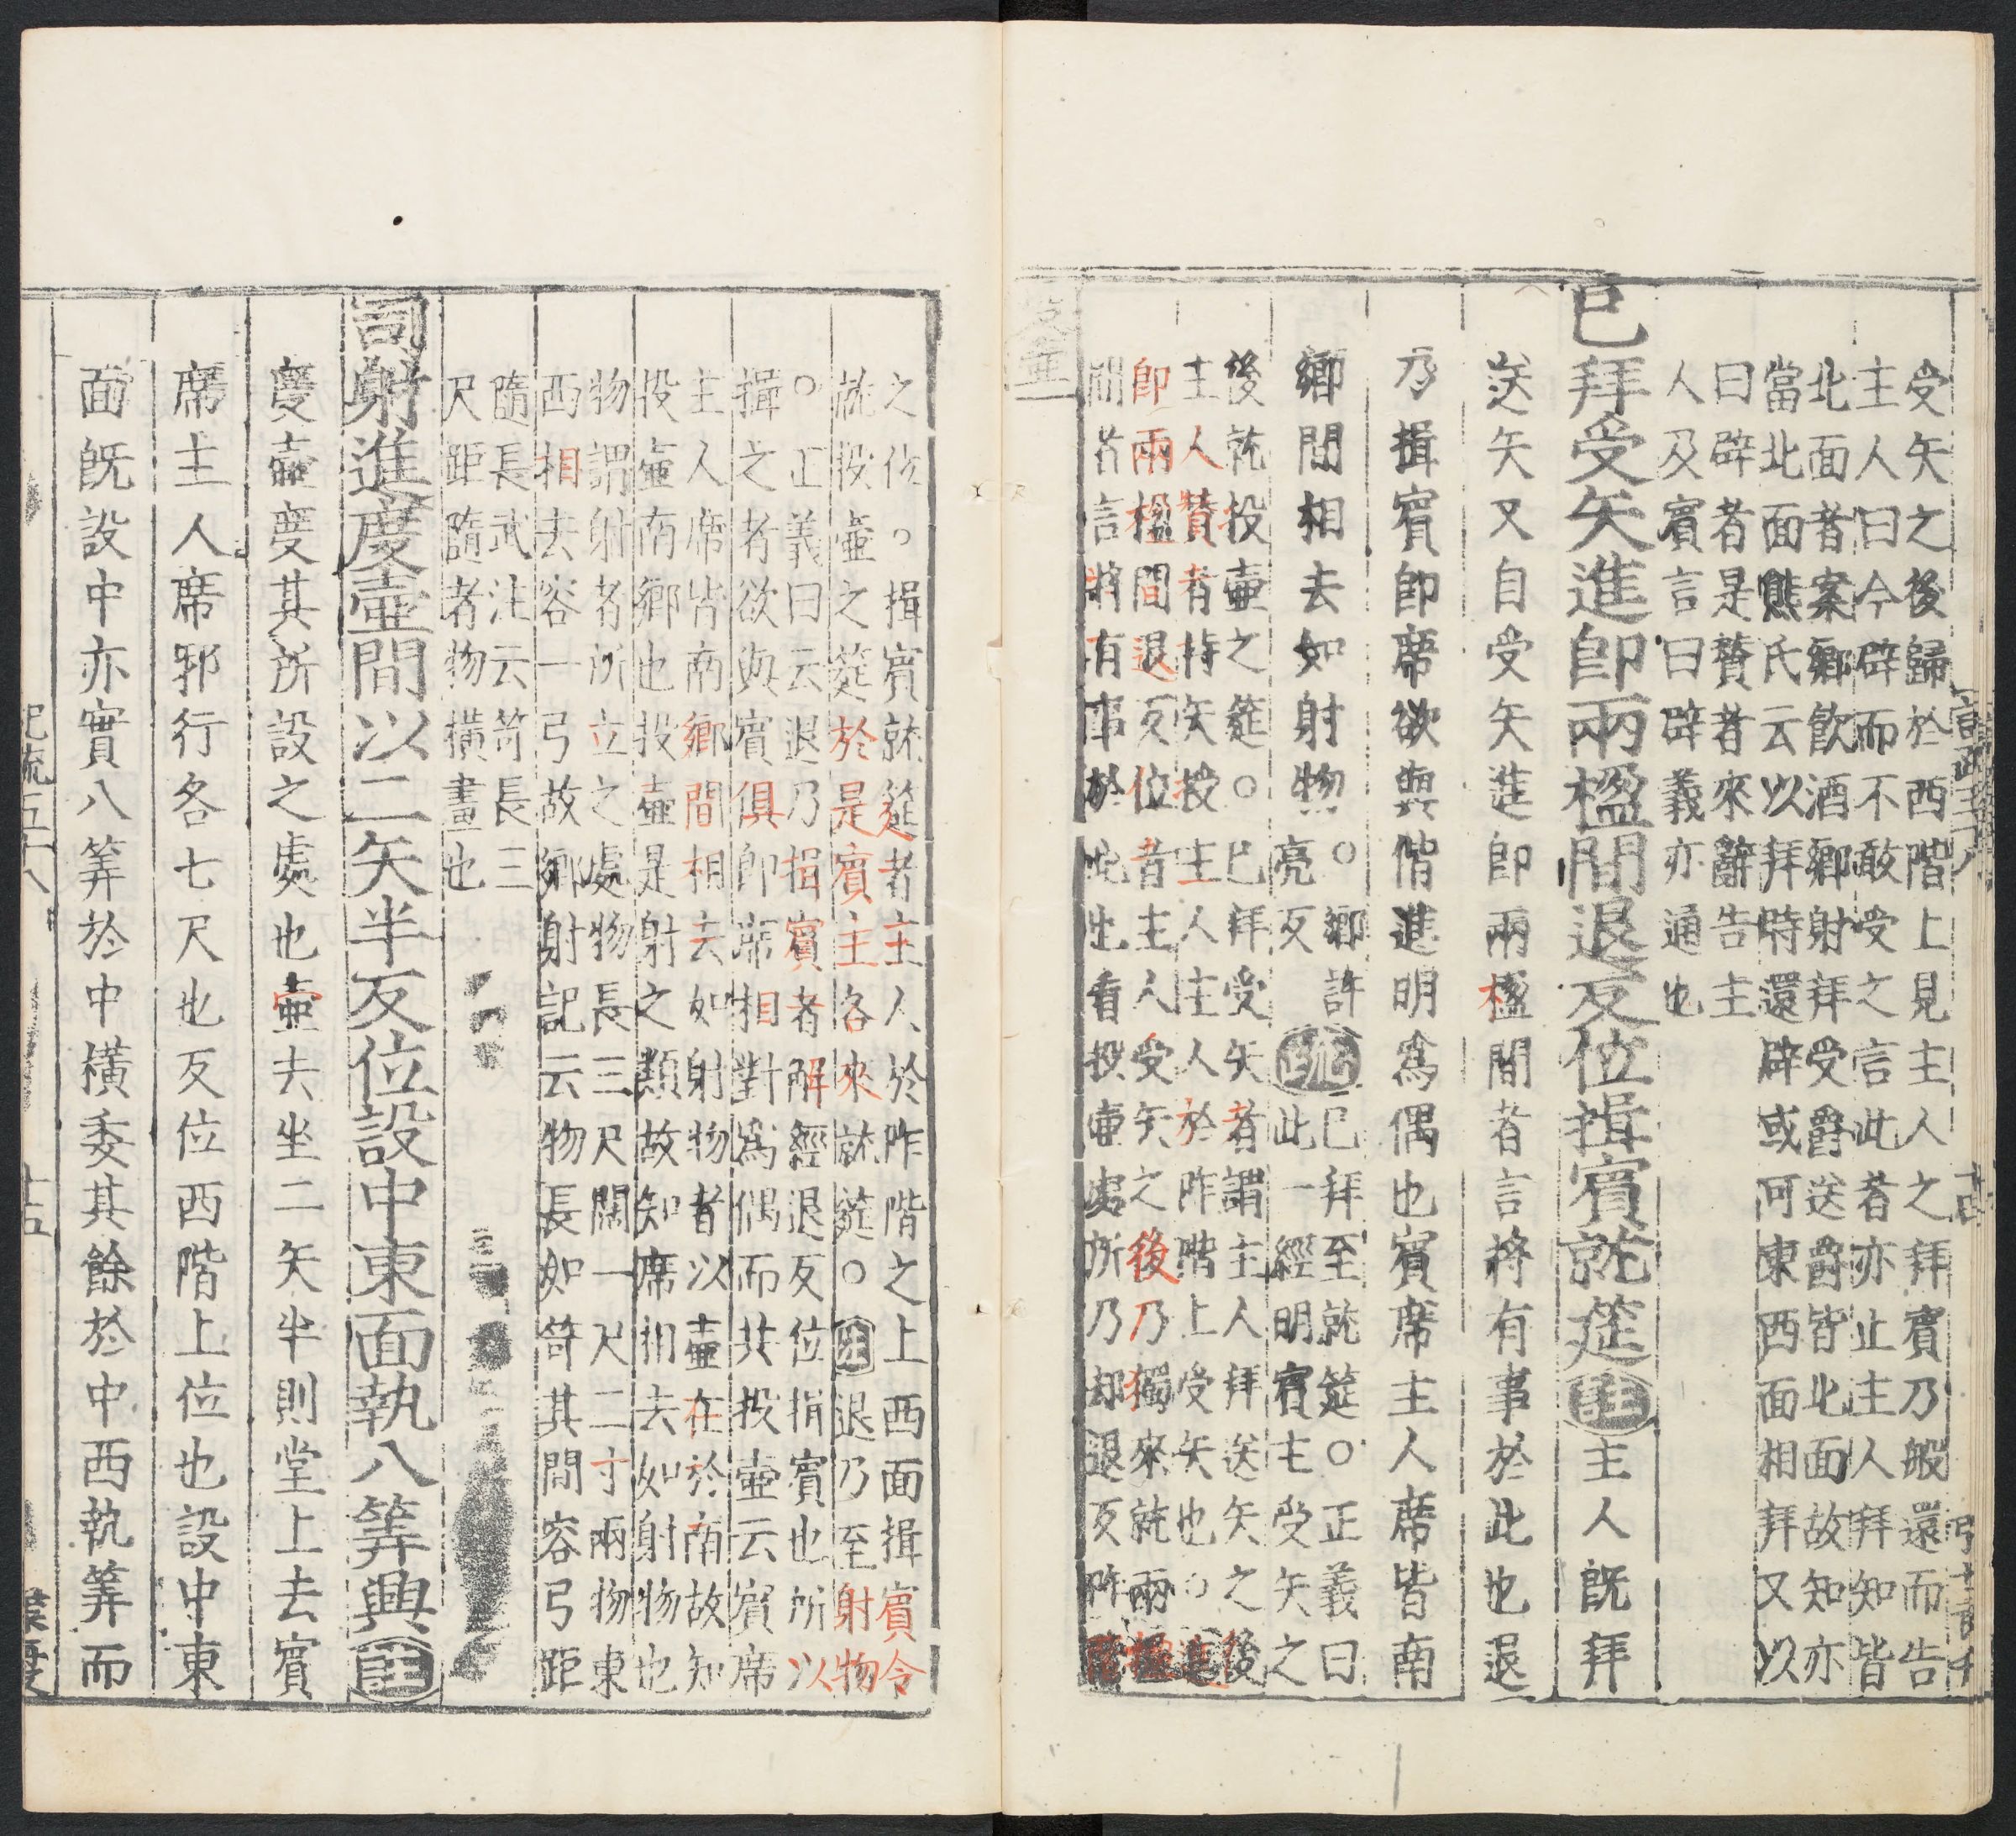 受矢之後歸於西階上見主人之拜賓乃般還而告
主人曰今辟而不敢受之言此者亦止主人拜知皆
北面者案鄉飲酒鄉射拜受爵送爵皆北面故知亦
當北面熊氏云以拜時還辟或可東西面相拜又以
曰辟者是贊者來辭告主
人及賓言曰辟義亦通也
已拜受矢進即兩楹間退反位揖賓就筵注主人既拜
送矢又自受矢進即兩楹間者言將有事於此也退
乃揖賓即席欲與偕進明爲偶也賓席主人席皆南
鄉間相去如射物
○鄉許
亮反
疏
已拜至就筵○正義曰
此一經明賓主受矢之
後就投壺之筵○已拜受矢者謂主人拜送矢之後
主人贊者持矢授主人主人於阼階上受矢也○進
即兩楹間退反位者主人受矢之後乃獨來就兩楹
間者言將有事於此也看投壺處所乃却退反阼階
之位○揖賓就筵者主人於阼階之上西面揖賓令
就投壺之筵於是賓主各來就筵○注退乃至射物
○正義曰云退乃揖賓者解經退反位揖賓也所以
揖之者欲與賓俱即席相對爲偶而共投壺云賓席
主人席皆南鄉間相去如射物者以壺在於南故知
投壺南鄉也投壺是射之類故知席相去如射物也
物謂射者所立之處物長三尺闊一尺二寸兩物東
西相去容一弓故鄉射記云物長如笴其間容弓距
隨長武注云笴長三
尺距隨者物橫畫也
司射進度壺間以二矢半反位設中東面執八筭興注
度壺度其所設之處也壺去坐二矢半則堂上去賓
席主人席邪行各七尺也反位西階上位也設中東
面既設中亦實八筭於中橫委其餘於中西執筭而
記疏五十八
十五